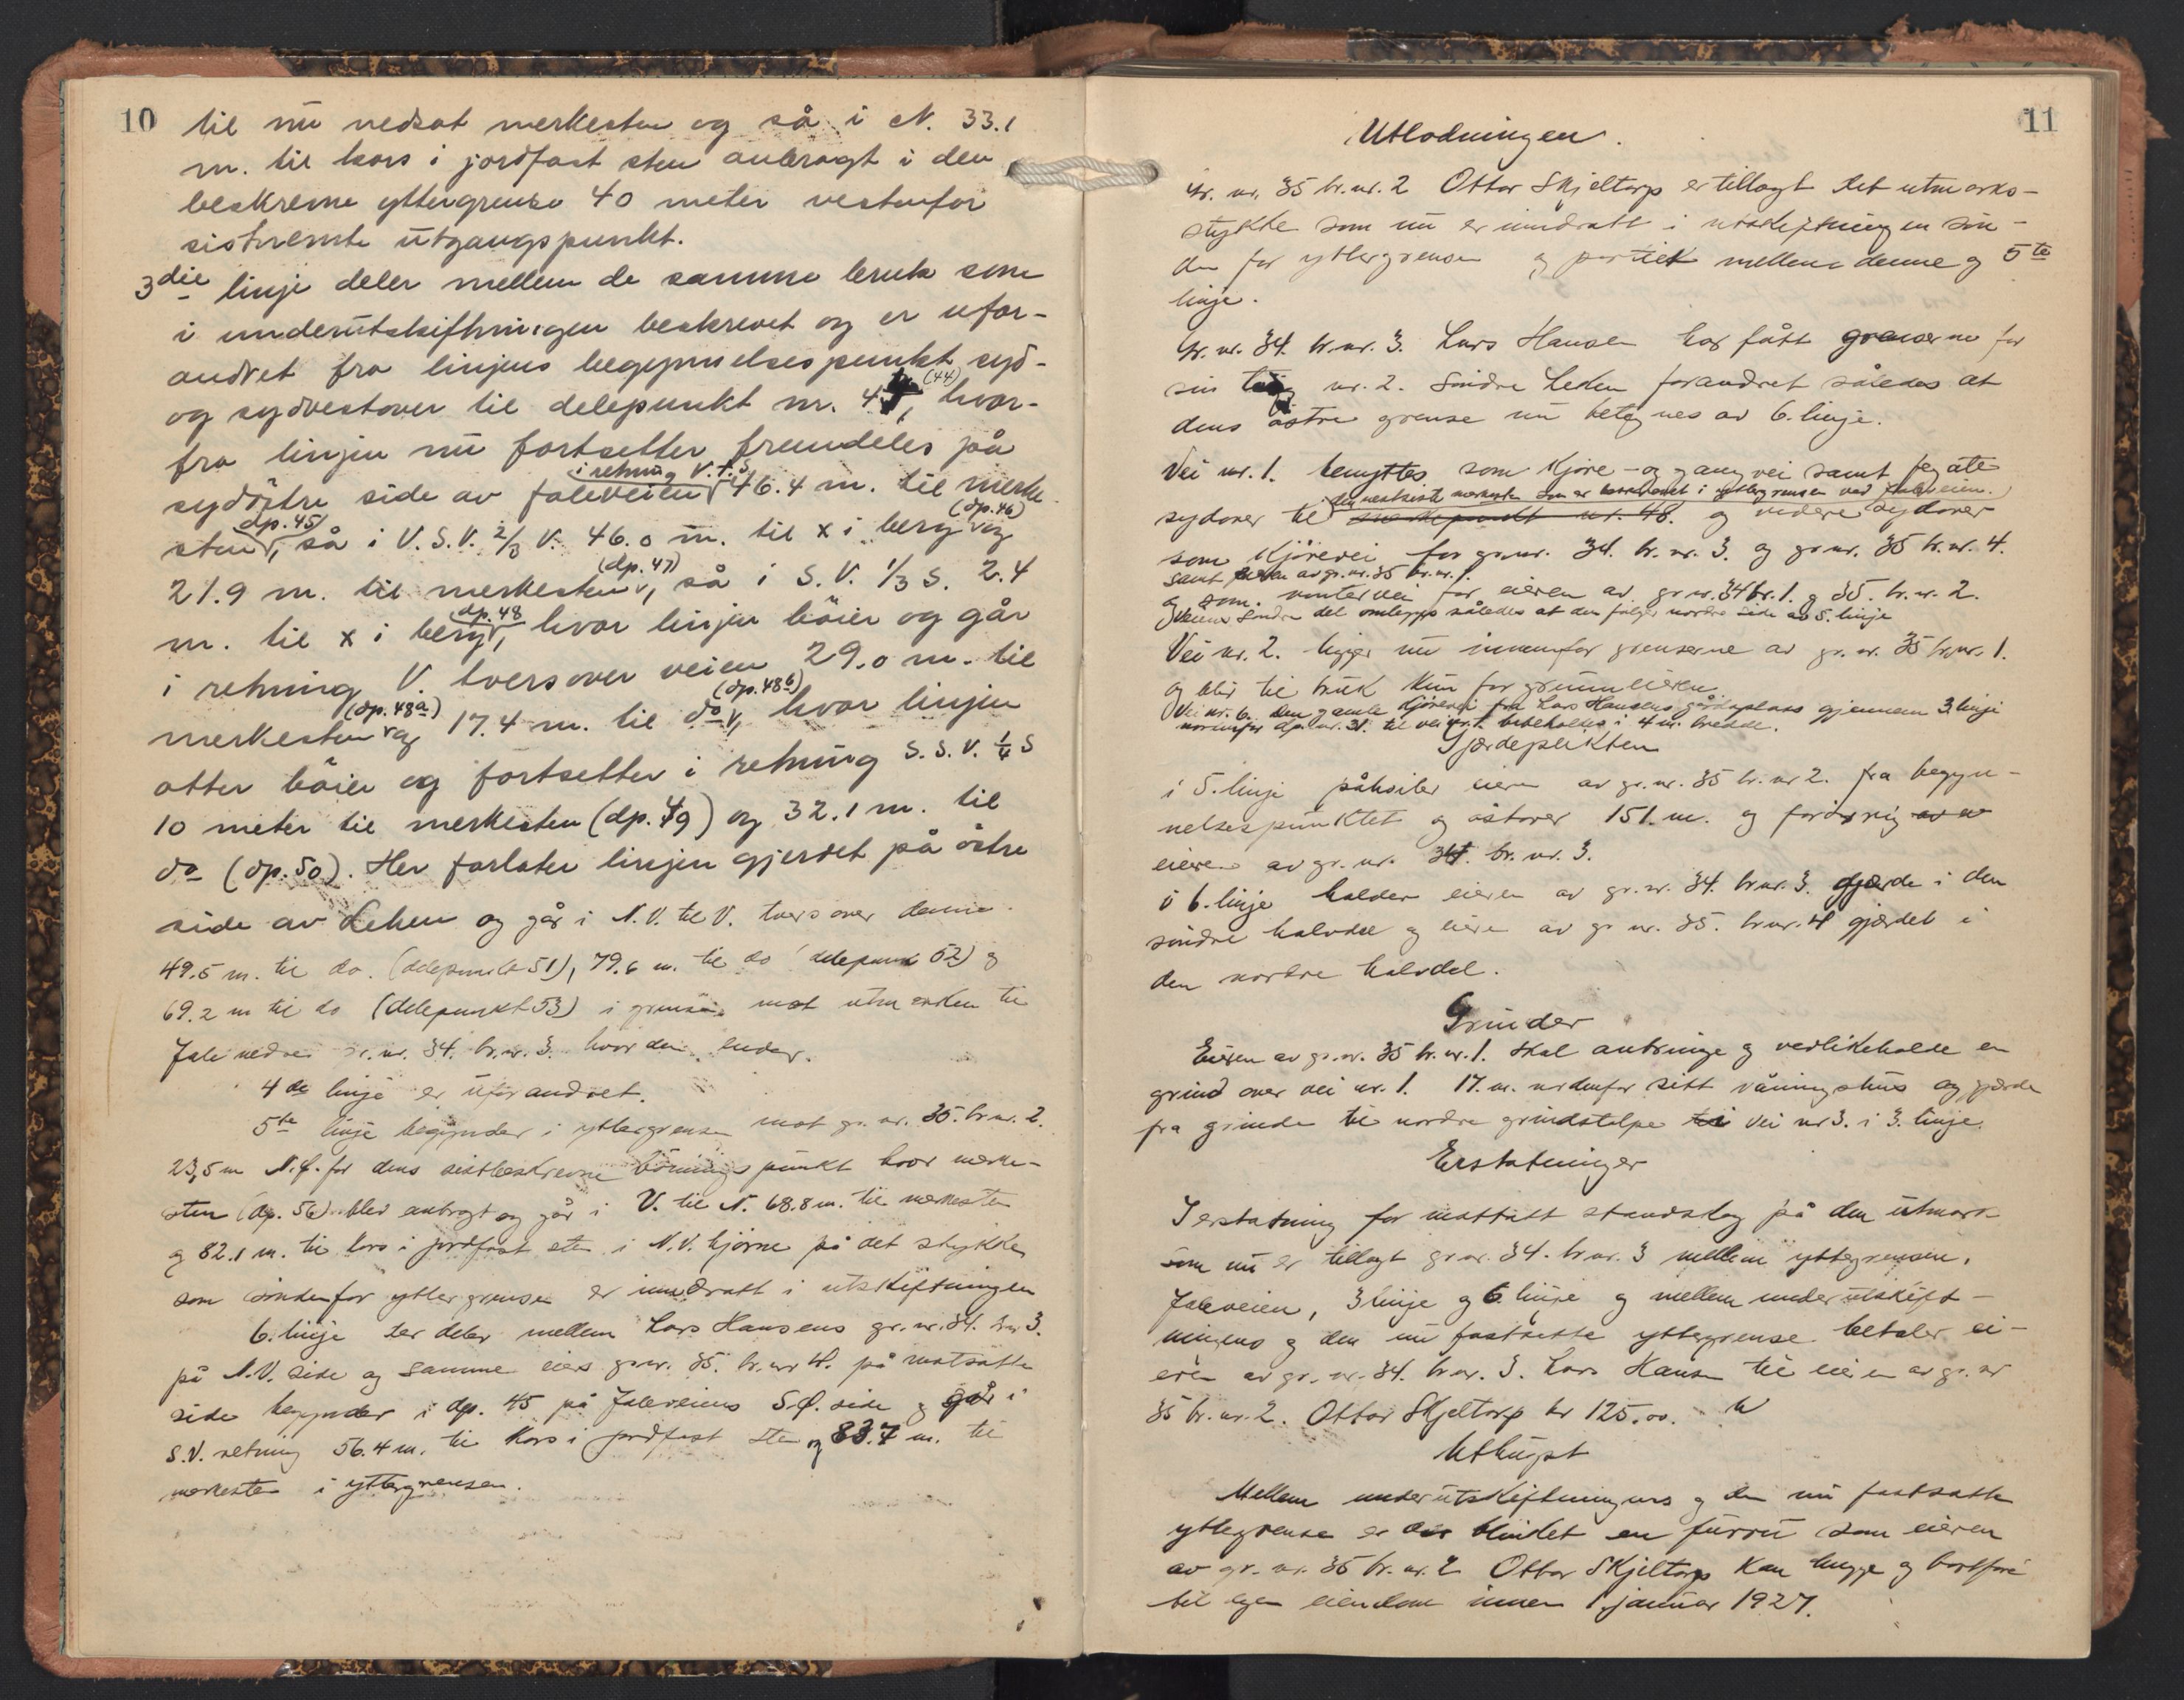 10
til nu nedsat merkesten og så i N. 33.1
m. til kors i jordfast sten anbragt i den
beskrevne yttergrense 40 meter vestenfor
sistnevnte utgangspunkt.
3die linje deler mellem de samme bruk som
i underutskiftningen beskrevet og er ufor-
andret fra linjens begynnelsespunkt syd-
og sydvestover til delepunkt nr. 4 (44), hvor-
fra linjen nu fortsetter fremdeles på
sydöstre side av faleveien i retning V. t. S 46.4 m. til merke
sten dp. 45, så i V.S.V. 2/3 V. 46.0 m. til x i berg (dp. 46) og
21.9 m. til merkesten (dp. 47), så i S.V. 1/3 S. 2.4
m. til x i berg dp. 48, hvor linjen böier og går
i retning V. tversover veien 29.0 m. til
merkesten (dp. 48a) og 17.4 m. til do (dp. 48b), hvor linjen
atter böier og fortsetter i retning S.S.V. 1/4 S
10 meter til merkesten (dp. 49) og 32.1 m. til
do (dp. 50). Her forlater linjen gjerdet på östre
side av Leken og går i N.V. til V. tvers over denne
49.5 m. til do. (delepunkt 51), 79.6 m. til do (delepunk 52) og
69.2 m til do (delepunkt 53) i grensen mot utmarken til
Jale nedre gr. nr. 34. br. nr. 3. hvor den ender.
4de linje er uforandret.
5te linje begynder i yttergrensen mot gr. nr. 35. br. nr. 2.
23,5 m N.Ø. for dens sistbeskrevne böinings punkt hvor merke-
sten (dp. 56) blev anbragt og går i V. til N. 68.8 m. til merkesten
og 82.1 m. til kors i jordfast sten i N.V. hjörne på det stykke
som söndenfor yttergrensen er inndratt i utskiftningen
6. linje der deler mellem Lars Hansens gr. nr. 34. br nr 3.
på N.V. side og samme eiers gr. nr. 35. br. nr 4. på motsatte
side begynder i dp. 45 på Jaleveiens S.Ø. side og går i
S.V. retning 56.4 m. til kors i jordfast sten og 83.7 m. til
merkesten i yttergrensen.
11
Utlodningen.
Gr. nr. 35 br. nr. 2 Ottar Skjeltorp er tillagt det utmarks-
stykke som nu er inndratt i utskiftningen sön-
den for yttergrensen og partiet mellem denne og 5te
linje.
Gr. nr. 34. br. nr. 3. Lars Hansen har fått grenserne for
sin teig nr. 2. Söndre Leken forandret således at
dens östre grense nu betegnes av 6. linje.
Vei nr. 1. benyttes som kjöre- og gangvei samt fegate
sydover til den nestsiste merkesten som er beskrevet i yttergrensen ved faleveien. merkepunkt nr. 48. og videre sydover
som kjörevei for gr. nr. 34. br. nr. 3. og gr nr. 35 br. nr. 4.
samt eieren av gr. nr. 35 br. nr. 1.
og som vintervei for eieren av gr nr. 34 br. 1. og 35. br. nr. 2.
Veiens söndre del omlegges således at den følger nordre side av 5. linje
Vei nr. 2. ligger nu innenfor grenserne av gr. nr. 35 br. nr. 1.
og blir til bruk kun for grunneieren.
Vei nr. 6. Den gamle kjörevei fra Lars Hansens gårdsplass gjennem 3. linje
nordenfor dp. nr. 31. til vei nr. 1. bibeholdes i 4 m. bredde.
Gjærdeplikten
i 5. linje påhviler eieren av gr. nr. 35 br. nr 2. fra begyn-
nelsespunktet og östover 151. m. og forövrig av
eieren av gr. nr. 34. br. nr. 3.
i 6. linje holder eieren av gr. nr. 34. br. nr. 3. gjærde i den
söndre halvdel og eieren av gr nr. 35. br. nr. 4 gjærdet i
den nordre halvdel.
Grinder
Eieren av gr. nr. 35 br. nr. 1. skal anbringe og vedlikeholde en
grind over vei nr. 1. 17. m. nordenfor sitt våningshus og gjærde
fra grinden til nordre grindstolpe i vei nr 3. i 3. linje.
Erstatninger
I erstatning for mottatt standskog på den utmark
som nu er tillagt gr nr. 34. br nr. 3 mellem yttergrensen,
Jaleveien, 3 linje og 6. linje og mellem underutskift-
ningens og den nu fastsatte yttergrense betaler ei-
eren av gr. nr. 34. br nr. 3. Lars Hansen til eieren av gr. nr
35 br. nr. 2. Ottar Skjeltorp kr 125.00.
Uthugst
Mellem underutskiftningens og den nu fastsatte
yttergrense er der blinket en furru som eieren
av gr. nr. 35 br. nr. 2 Ottar Skjeltorp kan hugge og bortføre
til egen eiendom innen 1 januar 1927.